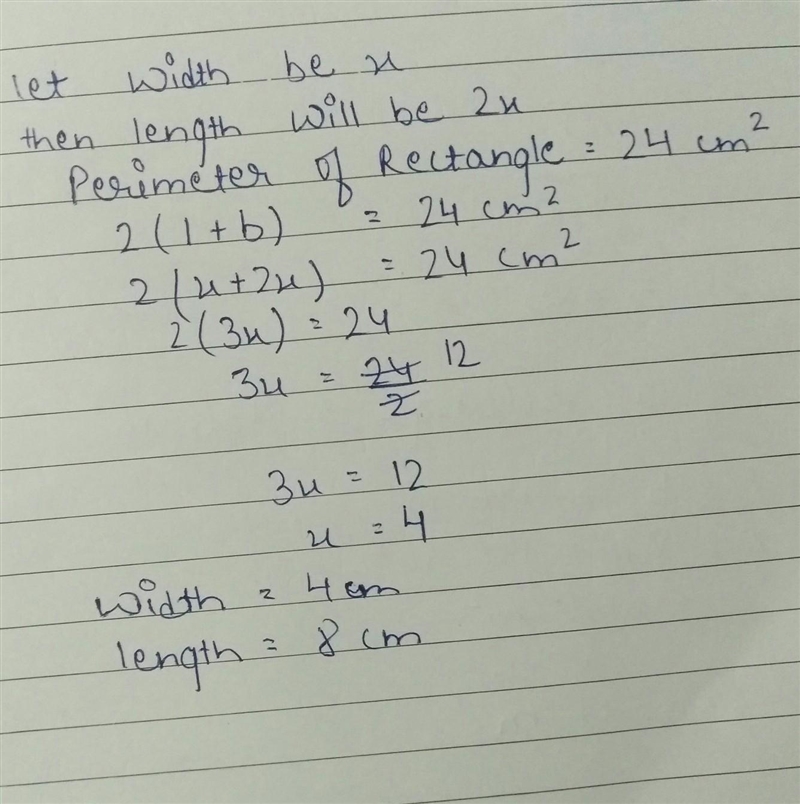 let width be x
then length will be 2x
Perimeter of Rectangle = 24 cm²
2(l+b) = 24 cm²
2(x+2x) = 24 cm²
2(3x) = 24
3x = 24/2 12
3x = 12
x = 4
width = 4cm
length = 8 cm